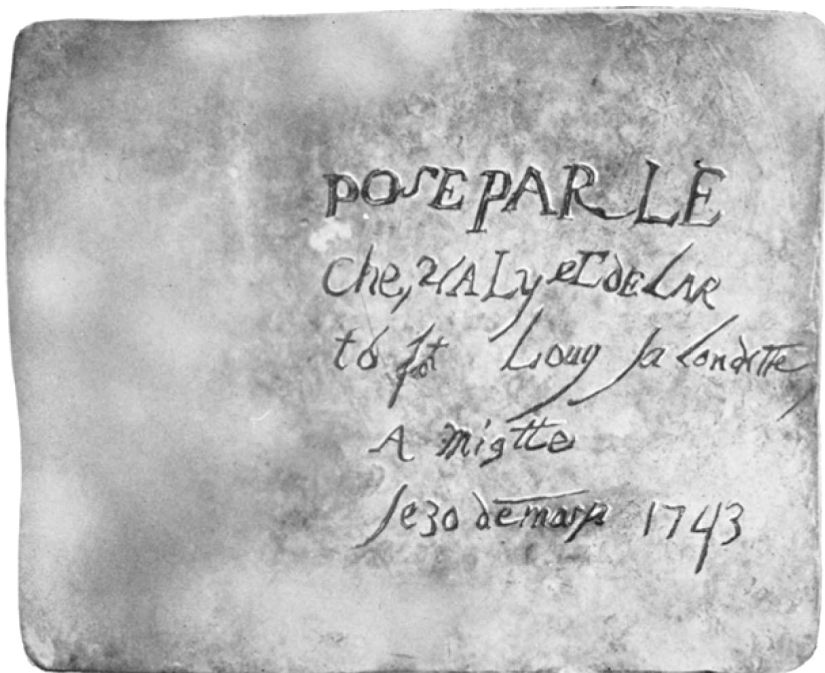 POSE PAR LE
Che,vALyet DE LAR
to st Louy la Londette
A miotte
le 30 de mars 1743